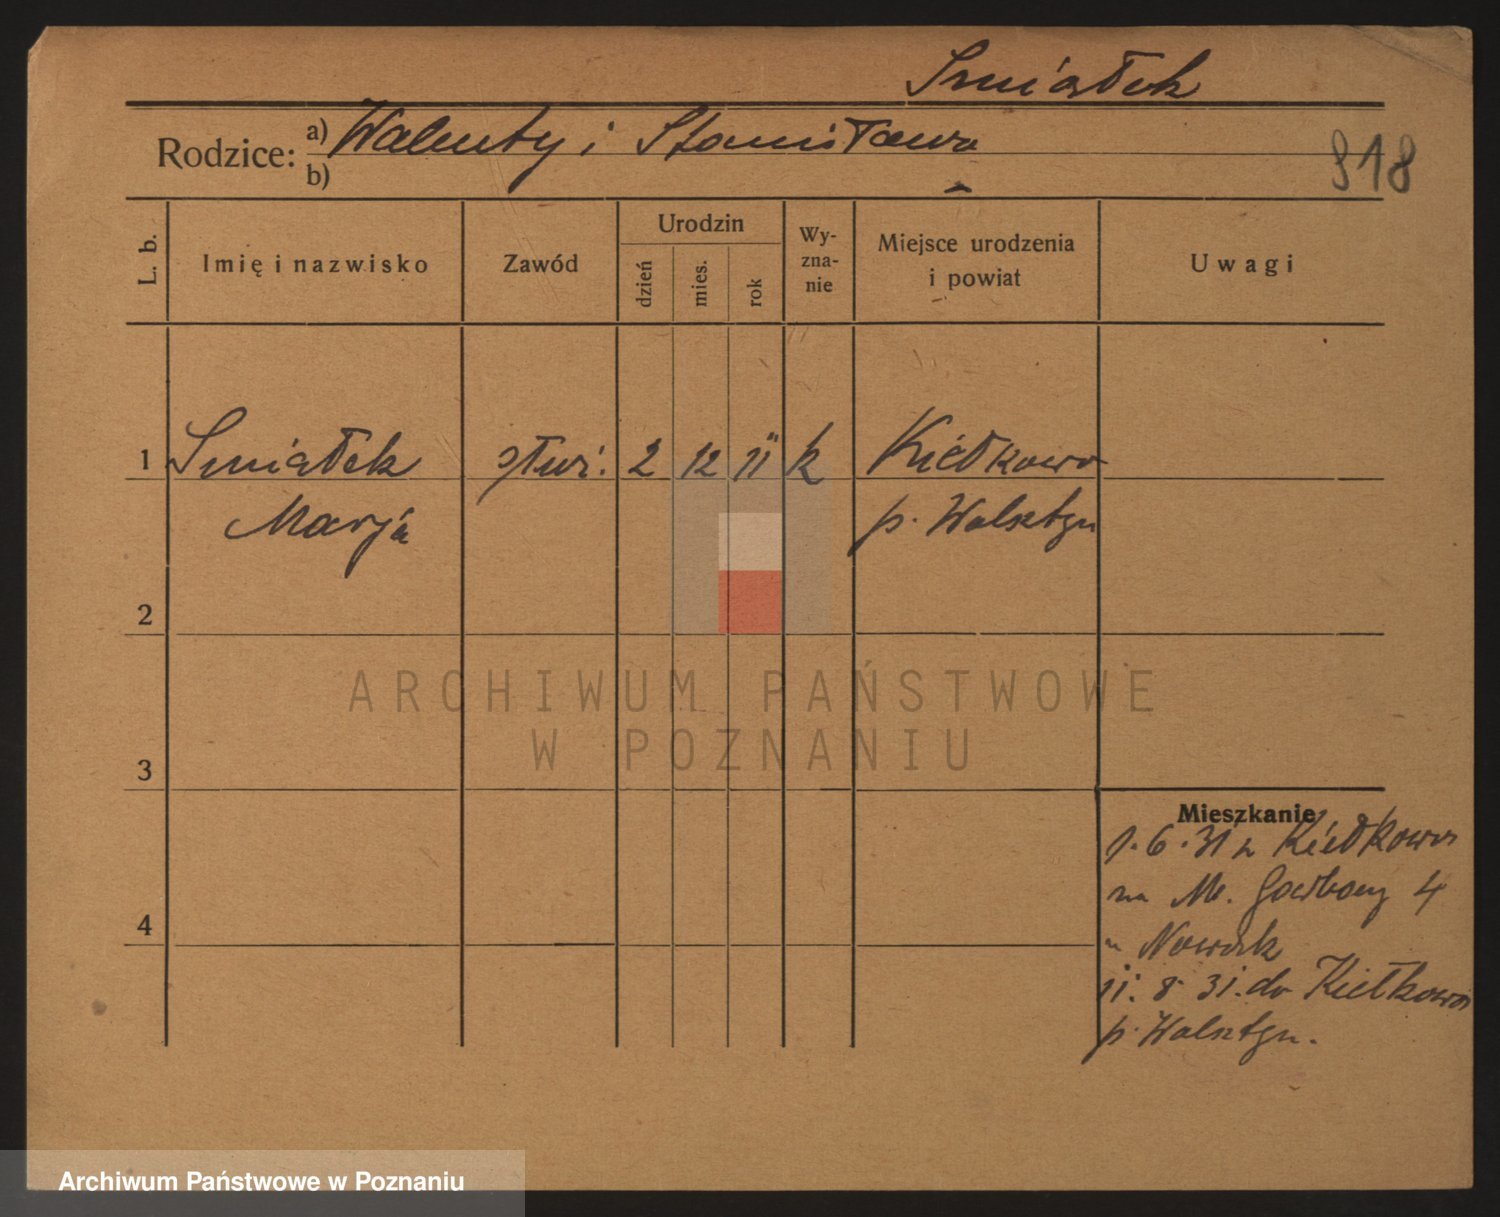 Smiałek
Rodzice: a) Walenty i Stanisława
b)
918
L. b.
Imię i nazwisko
Zawód
Urodzin
dzień
mies.
rok
Wy-
zna-
nie
Miejsce urodzenia
i powiat
Uwagi
1 Smiałek służ. 2 12 11 k Kiełkowo
Marja p. Wolsztyn
2
3
4
Mieszkanie
1.6.31 z Kiełkowo
na M. Garbary 4
u Nowak
11. 8 31. do Kiełkowo
p. Wolsztyn.
ARCHIWUM PAŃSTWOWE
W POZNANIU
Archiwum Państwowe w Poznaniu